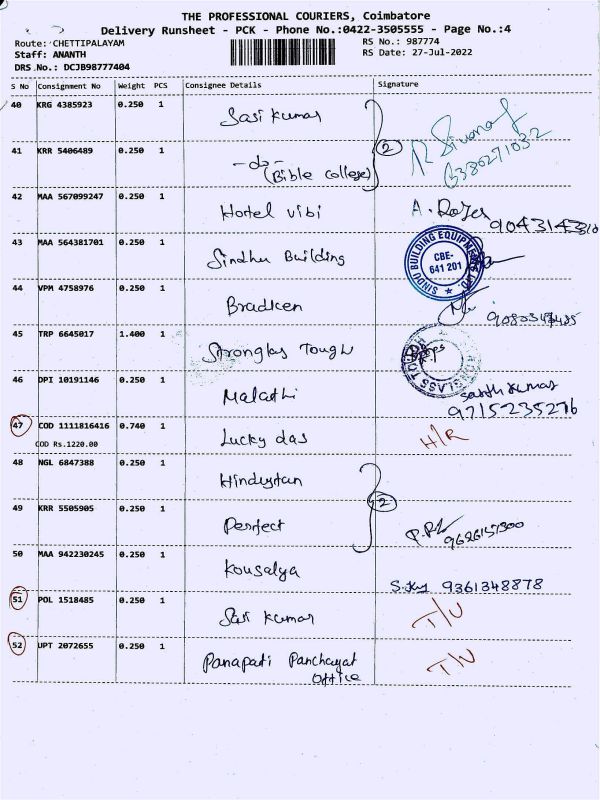 THE PROFESSIONAL COURIERS, Coimbatore
Delivery Runsheet - PCK - Phone No.:0422-3505555 - Page No.:4
Route: CHETTIPALAYAM RS No.: 987774
Staff: ANANTH RS Date: 27-Jul-2022
DRS No.: DCJB98777404
S No Consignment No Weight PCS Consignee Details Signature
40 KRG 4385923 0.250 1 Sasi Kumar
41 KRR 5406489 0.250 1 -do- (Bible College) 2 6380271032
42 MAA 567099247 0.250 1 Hotel Vibi A. Rojes
43 MAA 564381701 0.250 1 Sindhu Building
SINDU BUILDING EQUIPMENTS
CBE-
641 201
44 VPM 4758976 0.250 1 Bradken
45 TRP 6645017 1.400 1 Tough
46 DPI 10191146 0.250 1 Malathi 9715235276
47 COD 1111816416 0.740 1 Lucky das H/R
COD Rs.1220.00
48 NGL 6847388 0.250 1 Hindustan
49 KRR 5505905 0.250 1 Perfect 2
50 MAA 942230245 0.250 1 Kousalya 9361348878
51 POL 1518485 0.250 1 Sasi Kumar T/U
52 UPT 2072655 0.250 1 Panapati Panchayat T/U
Office